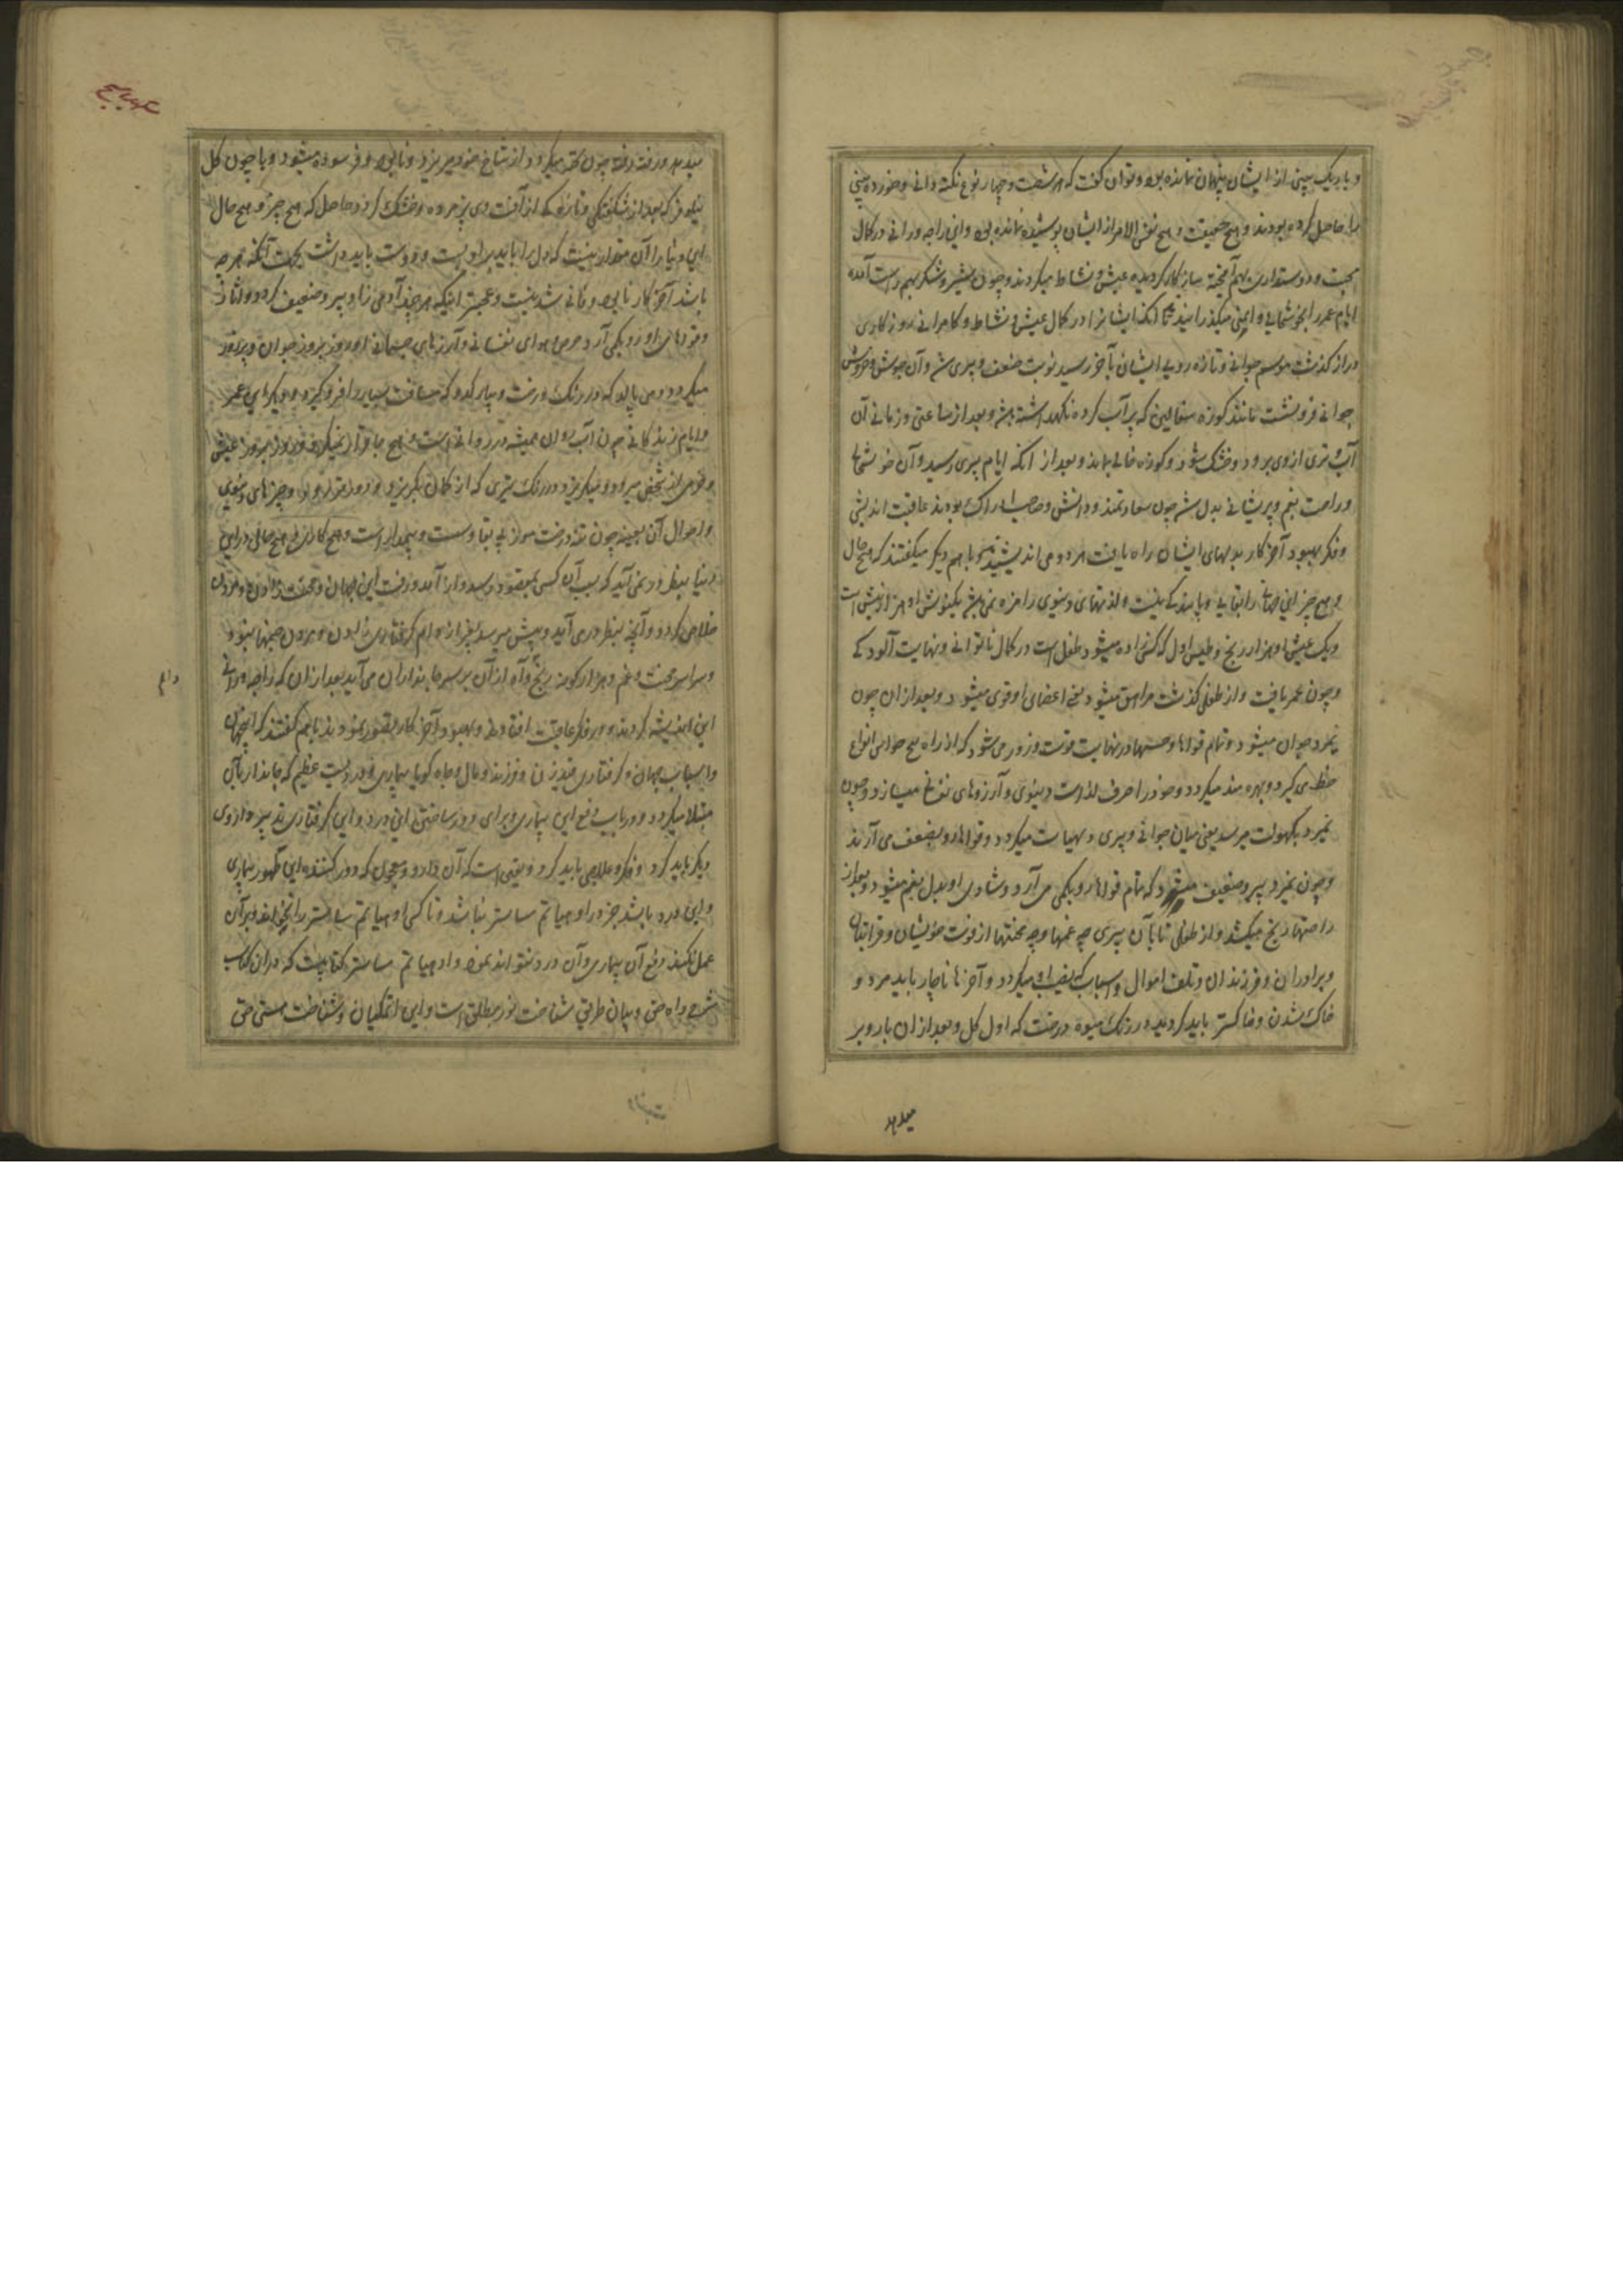 و باریک بینی از ایشان پنهان نمانده بود و توان گفت که هر شصت و چهار نوع نکته دانی و خورده بینی
را حاصل کرده بودند و هیچ حقیقت و هیچ نفس الامر از ایشان پوشیده نمانده بود و این راجه و رانی در کمال
محبت و دوستداری بهم آمیخته سازگار کردیده عیش و نشاط میکردند و چون شیر و شکر بهم راست آمده
ایام عمر را بخوشحالی و ایمنی میگذرانیدند تا آنکه ایشانرا در کمال عیش و نشاط و کامرانی روزگاری
دراز گذشت موسم جوانی و تازه رویی ایشان بآخر رسید نوبت ضعف و پیری شد و آن جوش و خروش
جوانی فرو نشست مانند کوزه سفالین که پر آب کرده نگهداشته باشند و بعد از ساعتی و زمانی آن
آب و تری از وی برود و خشک شود و کوزه خالی بماند و بعد از آنکه ایام پیری رسید و آن خوشحالی
و راحت بغم و پریشانی بدل شد چون سعادتمند و دانش و صاحب ادراک بودند عاقبت اندیشی
و فکر بهبود آخر کار بدلهای ایشان راه یافت هر دو می اندیشیدند و با هم دیگر میگفتند که هیچ حال
و هیچ چیز این جهان را بقایی و پایندگی نیست و لذتهای دنیوی را مزه نمی باشد یکنوش او هزار نیش است
و یک عیش او هزار رنج و طیس اول که کسی زاده میشود طفل است در کمال ناتوانی و نهایت آلودگی
و چون عمر یافت و از طفلی گذشت مراهق میشود یعنی اعضای او قوی میشود و بعد از آن چون
نمرد جوان میشود و تمام قوتها و حسها در نهایت قوت و زور می شود که از راه پنج حواس انواع
حظ می گیرد و بهره مند میگردد و خود را صرف لذات دنیوی و آرزوهای نفسانی میسازد و چون
نمیرد بکهولت میرسد یعنی میان جوانی و پیری و مهیات میگردد و قوتها رو بضعف می آرند
و چون نمیرد پیر و ضعیف میشود که تمام قوتها رو بکمی می آرد و شادی او بدل بغم میشود و بعد از
راحتها رنج میکشد و از طفلی تا بآن پیری چه غمها و چه محنتها از فوت خویشان و قرابتان
و برادران و فرزندان و تلف اموال و اسباب که نصیب او میگردد و آخر ها ناچار باید مرد و
خاک شدن و خاکستر باید گردید در رنگ میوه درخت که اول گل و بعد از آن بار و بر
میدهد
میدهد و رفته رفته چون پخته میگردد از شاخ خود میریزد و نابود و فرسوده میشود و یا چون گل
نیلوفر که بعد از شکفتگی و تازگی از آفت دی پژمرده و خشک گردد حاصل که هیچ چیز و هیچ حال
این دنیا را آن مقدار نیست که دل را باید بر او بست و دوست باید داشت بجهت آنکه هر چه
باشد آخر کار نابود و فانی شدنیست و عجبتر اینکه هر چند آدمی زاد پیر و ضعیف گردد و لذات
و قوتهای او رو بکمی آرد حرص و هوای نفسانی و آرزوهای جسمانی او روز بروز جوان و پرزور
میگردد و می بالد که در رنگ درخت و بیاره کدو که مسافت بسیار را فرو گیرد و دیگر این عمر
و ایام زندگانی چون آب روان همیشه در روانی است و هیچ جا قرار نمیگیرد و روز بروز عیش
و خوشی از شخص میرود و میگریزد در رنگ تیری که از کمان بگریزد و دور تر رود و چیزهای دنیوی
و احوال آن بعینه چون تنه درخت موز بی بقا و سست و بیمدار است و هیچ کاری و هیچ حالی در این
دنیا بنظر در نمی آید که بسبب آن کسی بمقصود رسد و از آمد و رفت این جهان و محنت زادن و مردن
خلاص گردد و آنچه بنظر در می آید و پیش میرسد بغیر از دام گرفتاری زادن و مردن جنمها نبود و
و سراسر محنت و غم و هزار گونه رنج و آه از آن بر سر جانداران می آید بعد از آن که راجه و رانی
این اندیشه کردند و در فکر عاقبت افتادند و بهبود آخر کار تصور نمودند باهم گفتند که اینجهان
و اسباب جهان و گرفتاری بقید زن و فرزند و مال و جاه گویا بیماری و دردیست عظیم که جاندار بآن
مبتلا میگردد و در باب دفع این بیماری و برای دور ساختن این درد و این گرفتاری تدبیر و داروی
دیگر باید کرد و فکر و علاجی باید کرد و یقین است که آن دارو و معجون که دور کننده این گونه بیماری
و این درد باشد جز در ادهیاتم ساستر نباشد و تا کسی ادهیاتم ساستر را نخواند و بر آن
عمل نکند دفع آن بیماری و آن درد نتواند نمود و ادهیاتم ساستر کتابیست که در آن کتاب
شرح راه حق و بیان طریق شناخت نور مطلق است و این